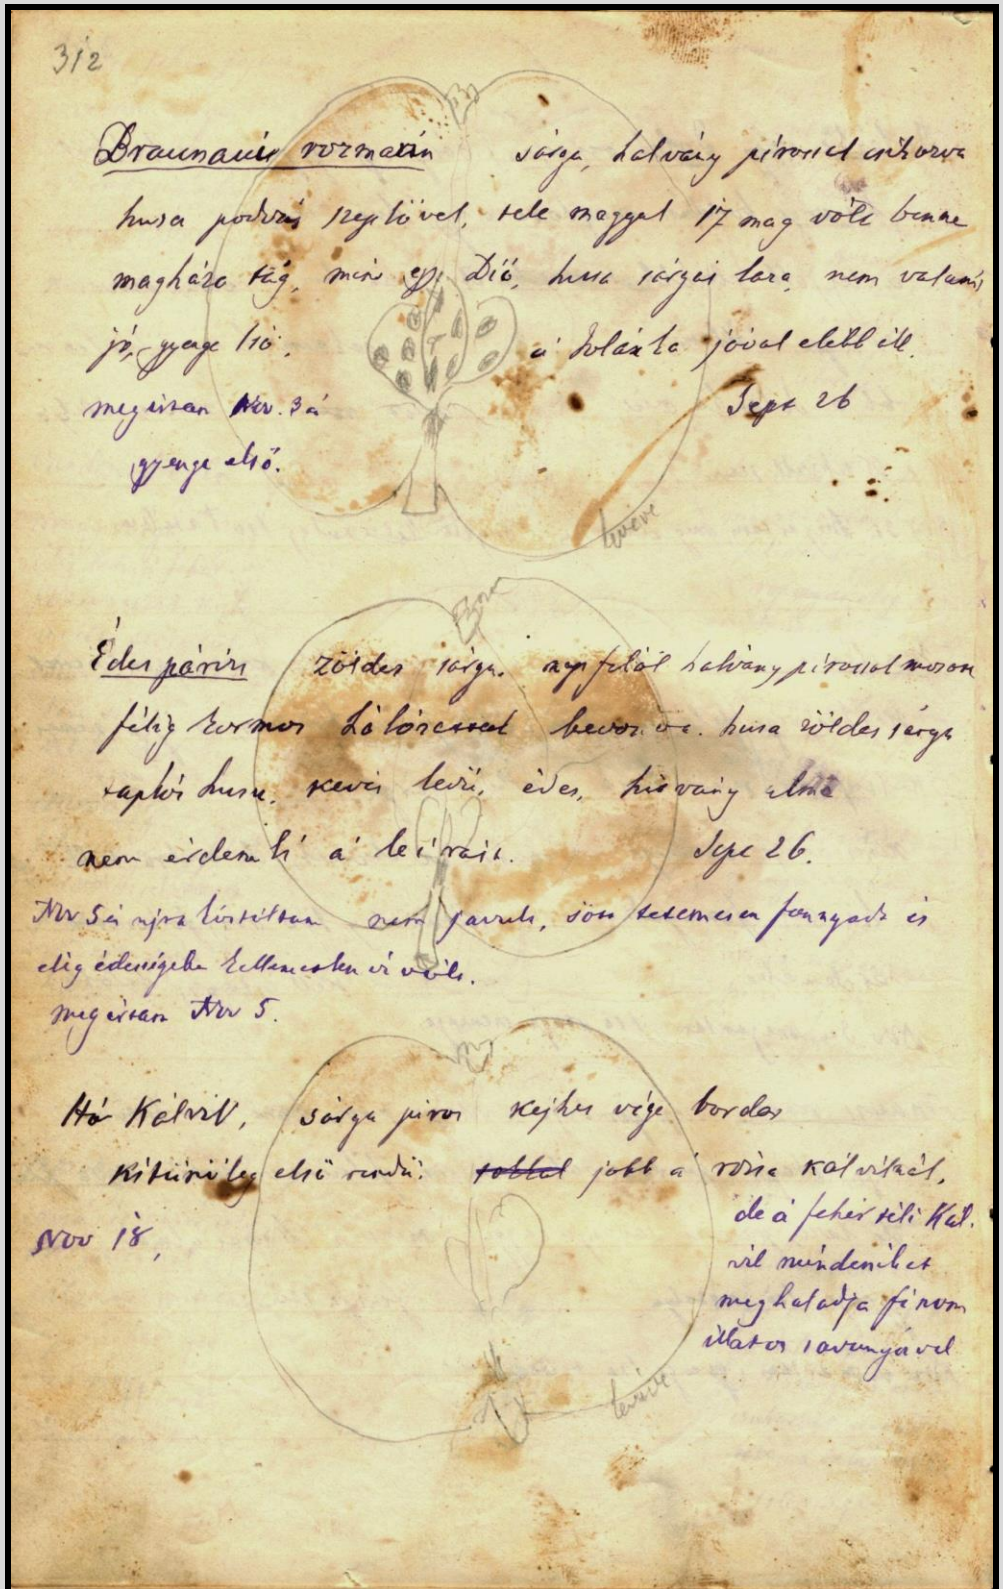 312
Braunaui rozmarin sárga, halvány pirossal csikozva
husa podvás szeplővel, tele maggal 17 mag vólt benne
magháza tág, mint egy Dió, husa sárgás laza, nem valami
jó, gyenge lső. a' jóval elébb áll.
megettem Nov. 3á Sept 26
gyenge első.
leirva
Édes párisi zöldes sárga. nap felöl halvány pirossal mosott
félig kormos hálózattal bevonva. husa zöldes sárga
taplós husu, kevés levü, édes, hitvány alma
nem érdemli a' leirást. Sept 26.
Nov 5én ujra kóstoltam nem javult, sőtt fonnyadt és
elég édességebe kellemetlen íz vólt.
megettem Nov 5.
Hó Kálvil, sárga piros kejhes vége bordás
kitünőleg első rendü. jobb a' rózsa kálvilnál,
de a' fehér téli Kál-
Nov 18,
vil mindeniket
meghaladja finom
illatos savanyával
leirva